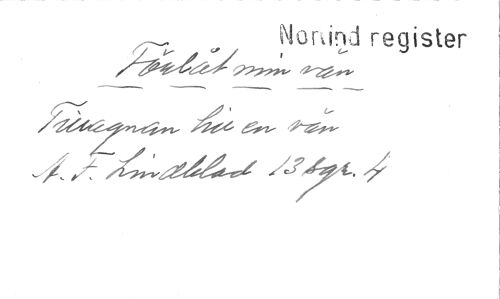 Nonind register
Förlåt min vän
Tillagnan hu en vän
A. F. Lindblad 13 sgr. 4